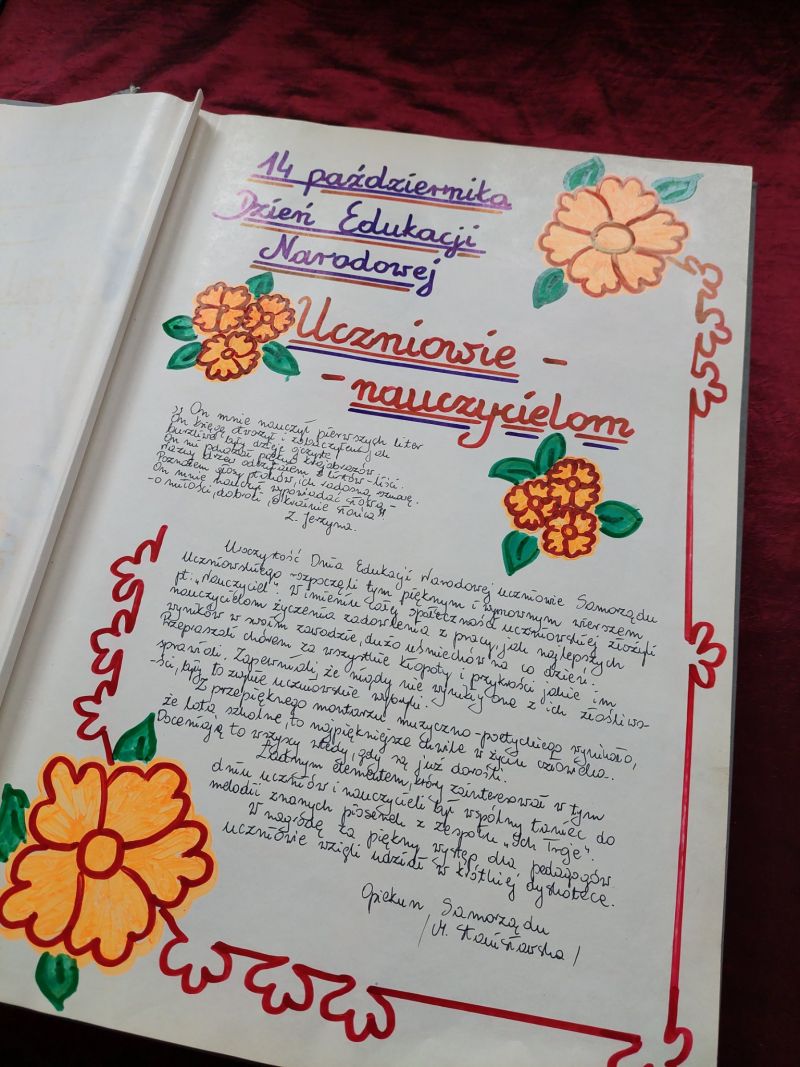 14 października
Dzień Edukacji
Narodowej
Uczniowie -
- nauczycielom
„On mnie nauczył pierwszych liter
On księgę otworzył i zobaczyłem jak
burzliwe były dzieje ojczyste!
On mi pokazał piękno krajobrazów,
Poznałem głosy ptaków, ich radosną wrzawę.
On mnie nauczył wypowiadać słowa -
- o miłości, dobroci, o krainie słońca"
Z. Jerzyna.
Uroczystość Dnia Edukacji Narodowej uczniowie Samorządu
Uczniowskiego rozpoczęli tym pięknym i wymownym wierszem
pt. „Nauczyciel". W imieniu całej społeczności uczniowskiej złożyli
nauczycielom życzenia zadowolenia z pracy, jak najlepszych
wyników w swoim zawodzie, dużo uśmiechów na co dzień.
Przepraszali chórem za wszystkie kłopoty i przykrości jakie im
sprawili. Zapewniali, że nigdy nie wynikały one z ich złośliwo-
-ści, były to zwykłe uczniowskie wybryki.
Z przepięknego montażu muzyczno-poetyckiego wynikało,
że lata szkolne, to najpiękniejsze chwile w życiu człowieka.
Doceniają to wszyscy wtedy, gdy są już dorośli.
Ładnym elementem, który zainteresował w tym
dniu uczniów i nauczycieli był wspólny taniec do
melodii znanych piosenek z zespołu „Ich Troje".
W nagrodę za piękny występ dla pedagogów
uczniowie wzięli udział w krótkiej dyskotece.
Opiekun Samorządu
/M. Stanisławska/